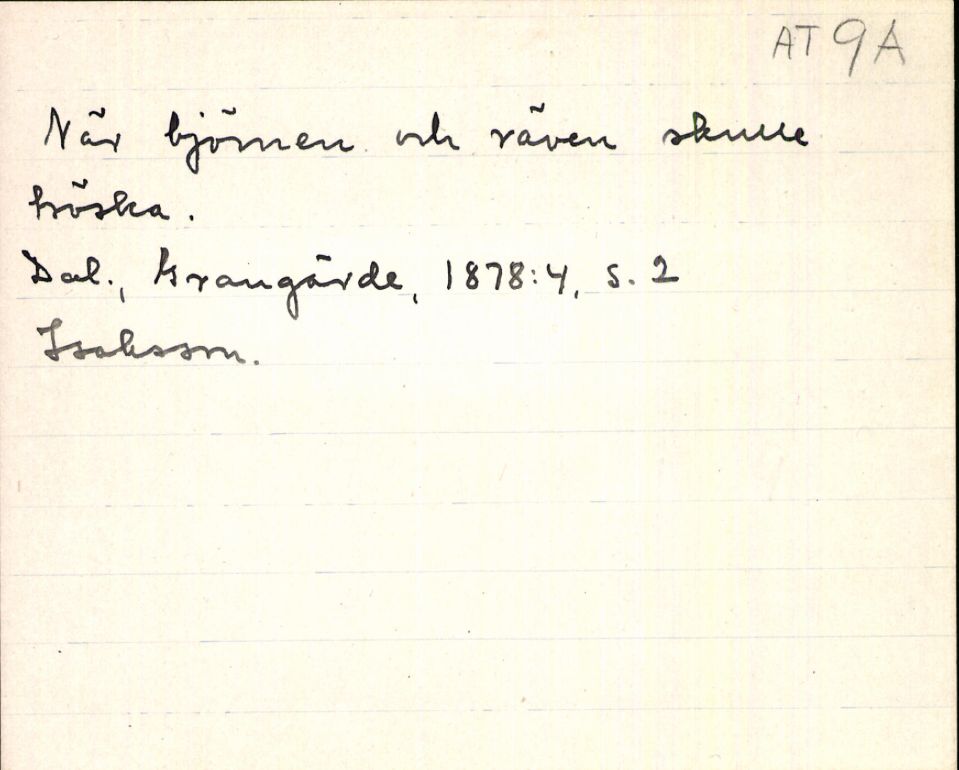 AT 9A
När björnen och räven skulle
tröska.
Dal., Grangärde, 1878:4, s. 2
Isaksson.